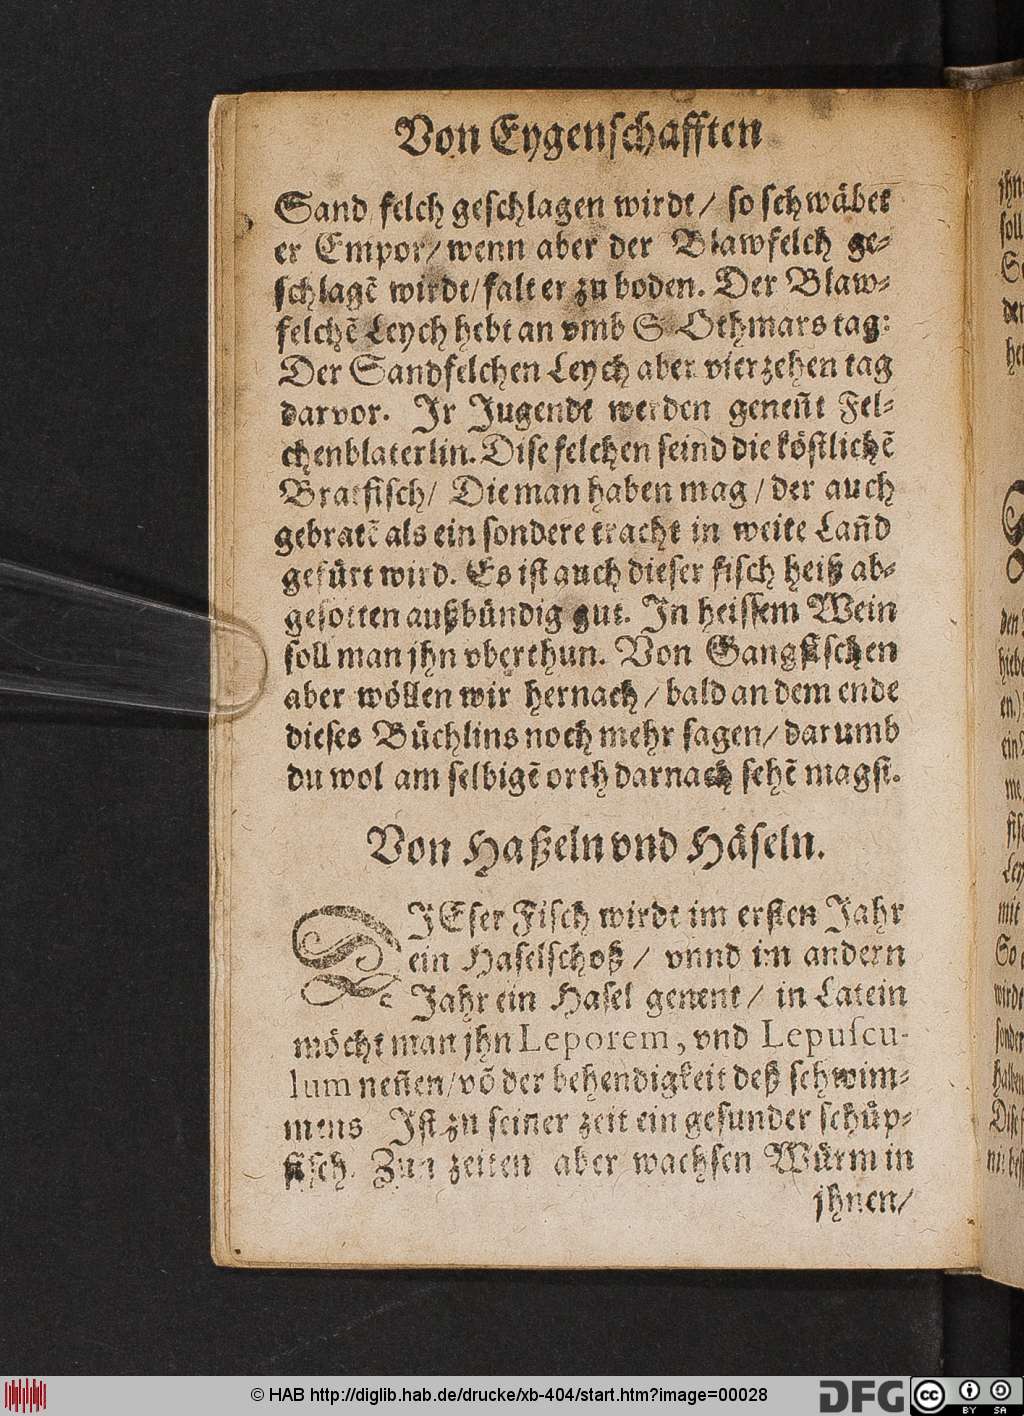 Von Eygenschafften
Sand felch geschlagen wirdt / so schwäbet
er Empor / wenn aber der Blawfelch ge-
schlagẽ wirdt / falt er zu boden. Der Blaw-
felchẽ Leych hebt an vmb S Othmars tag:
Der Sandfelchen Leych aber vierzehen tag
darvor. Jr Jugendt werden geneñt Fel-
chenblaterlin. Dise felchen seind die köstlichẽ
Bratfisch / Die man haben mag / der auch
gebratẽ als ein sondere tracht in weite Lañd
gefürt wird. Es ist auch dieser fisch heiß ab-
gesotten außbündig gut. In heissem Wein
soll man jhn vberthun. Von Gangfischen
aber wöllen wir hernach / bald an dem ende
dieses Büchlins noch mehr sagen / darumb
du wol am selbigẽ orth darnach sehẽ magst.
Von Haßeln vnd Häseln.
DJEser Fisch wirdt im ersten Jahr
ein Haselschoß / vnnd im andern
Jahr ein Hasel genent / in Latein
möcht man jhn Leporem, vnd Lepuscu-
lum neñen / võ der behendigkeit deß schwim-
mens Ist zu seiner zeit ein gesunder schüp-
fisch. Zun zeiten aber wachsen Würm in
jhnen /
© HAB http://diglib.hab.de/drucke/xb-404/start.htm?image=00028
DFG
cc BY SA